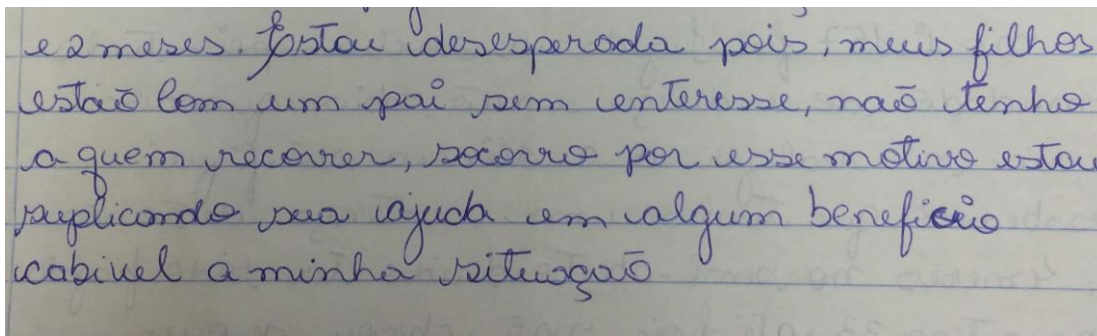 e 2 meses. Estou desesperada pois, meus filhos
estaõ com um pai sem enteresse, naõ tenho
a quem recorrer, socorro por esse motivo estou
suplicando sua ajuda em algum beneficio
cabivel a minha situaçaõ